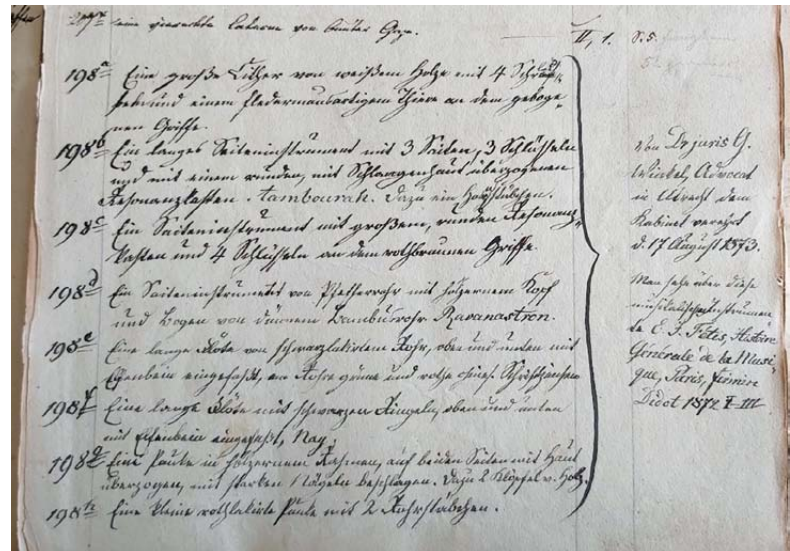 eine viereckte Laterne von bunter Gaze.
II, 1. S. 5.
198a Eine große Zither von weißem Holze mit 4
und einem fledermausartigem Thiere an dem geboge-
nen Griffe.
198b Ein langes Seiteninstrument mit 3 Seiten, 3 Schlüsseln
und mit einem runden, mit Schlangenhaut überzogenen
Resonanzkasten. Tambourah. Dazu ein Holzstäbchen.
198c Ein Saiteninstrument mit großem, runden Resonanz-
kasten und 4 Schlüsseln an dem rothbraunen Griffe.
198d Ein Saiteninstrument von Pfefferrohr mit hölzernem Kopf
und Bogen von dünnem Bambusrohr. Ravanastron.
198e Eine lange Flöte von schwarzlakirtem Rohr, oben und unten mit
Elfenbein eingefaßt, am Rohre grüne und rothe chines. Schriftzeichen
198f Eine lange Flöte mit schwarzen Ringeln, oben und unten
mit Elfenbein eingefaßt, Nay.
198g Eine Pauke in hölzernem Rahmen, auf beiden Seiten mit Haut
überzogen, mit starken Nägeln beschlagen. Dazu 2 Klöpfel v. Holz.
198h Eine kleine rothlakirte Pauke mit 2 Rohrstäbchen.
Von Dr juris G.
Winkel, Advocat
in Utrecht dem
Kabinet verehrt
d. 17 August 1873.
Man sehe über diese
musikalischen Instrumente
de E. J. Fétis, Histoire
Générale de la Musi-
que, Paris, Firmin
Didot 1872 I-III